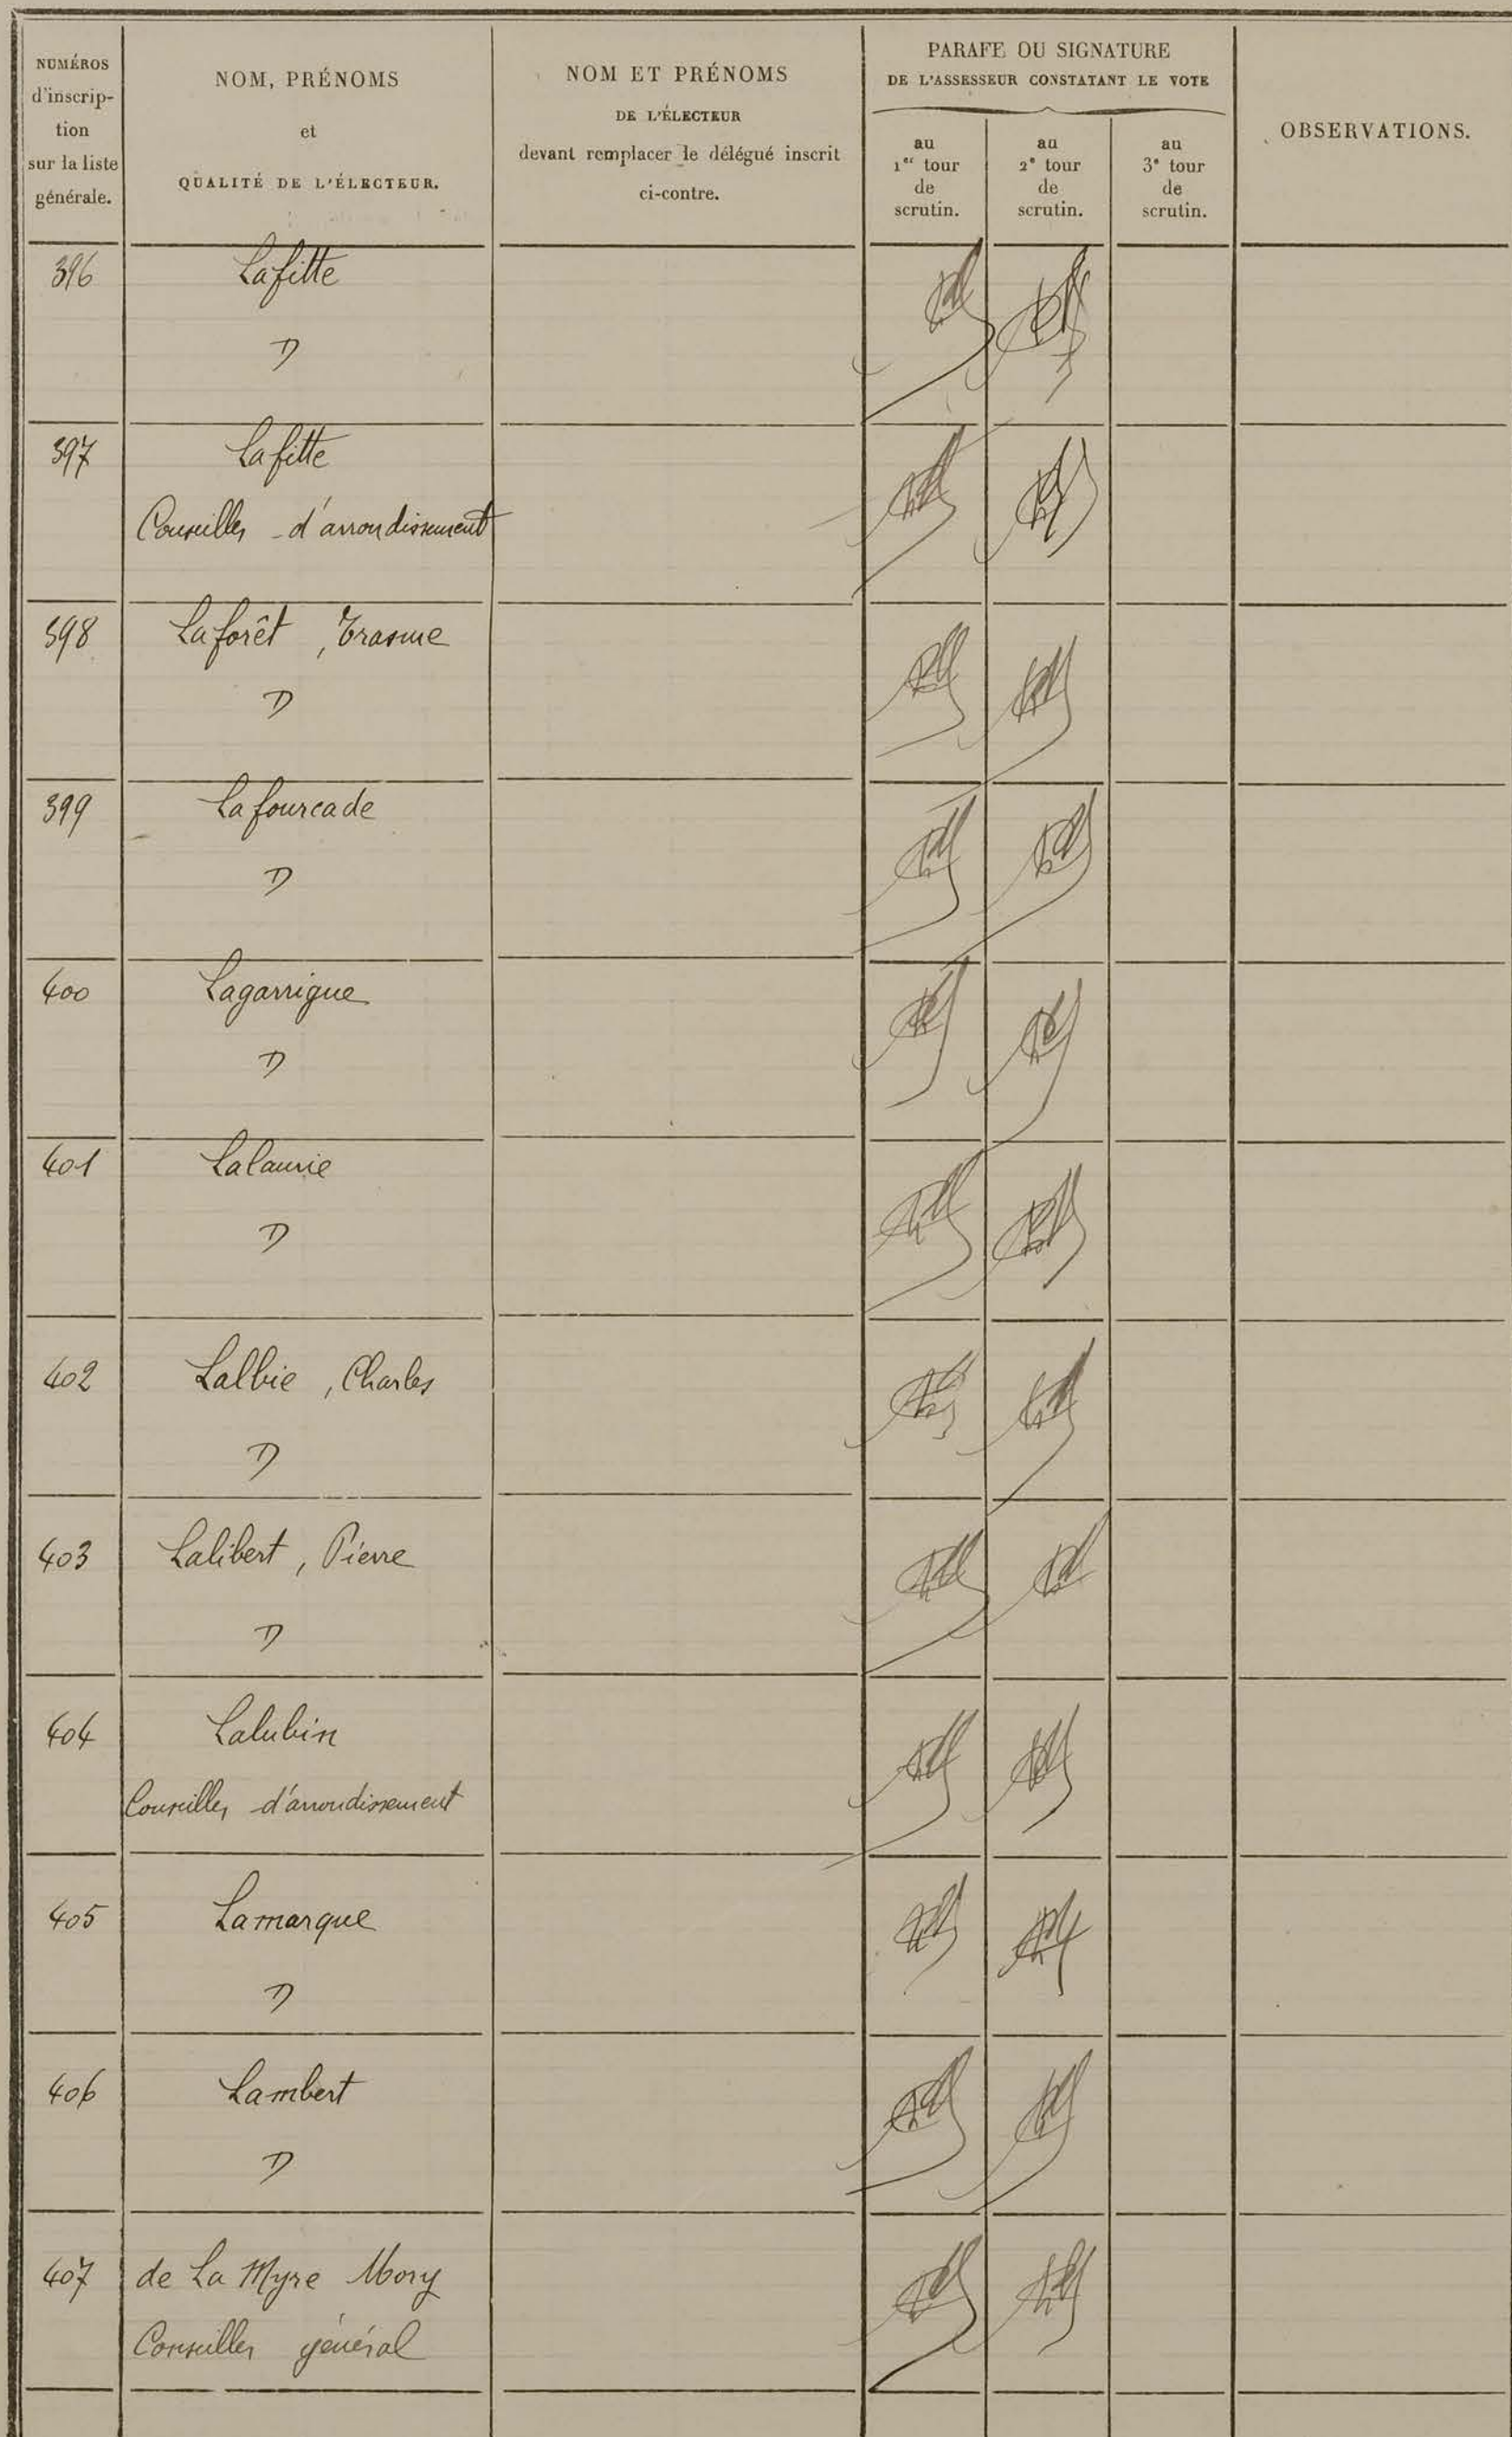 NUMÉROS
d'inscrip-
tion
sur la liste
générale.
NOM, PRÉNOMS
et
QUALITÉ DE L'ÉLECTEUR.
NOM ET PRÉNOMS
DE L'ÉLECTEUR
devant remplacer le délégué inscrit
ci-contre.
PARAFE OU SIGNATURE
DE L'ASSESSEUR CONSTATANT LE VOTE
au
1er tour
de
scrutin.
au
2e tour
de
scrutin.
au
3e tour
de
scrutin.
OBSERVATIONS.
396 Lafitte
D
397 Lafitte
Conseiller d'arrondissement
398 Laforêt, Erasme
D
399 Lafourcade
D
400 Lagarrigue
D
401 Lalaurie
D
402 Lalbie, Charles
D
403 Lalibert, Pierre
D
404 Lalubin
Conseiller d'arrondissement
405 Lamarque
D
406 Lambert
D
407 de La Myre Mory
Conseiller général